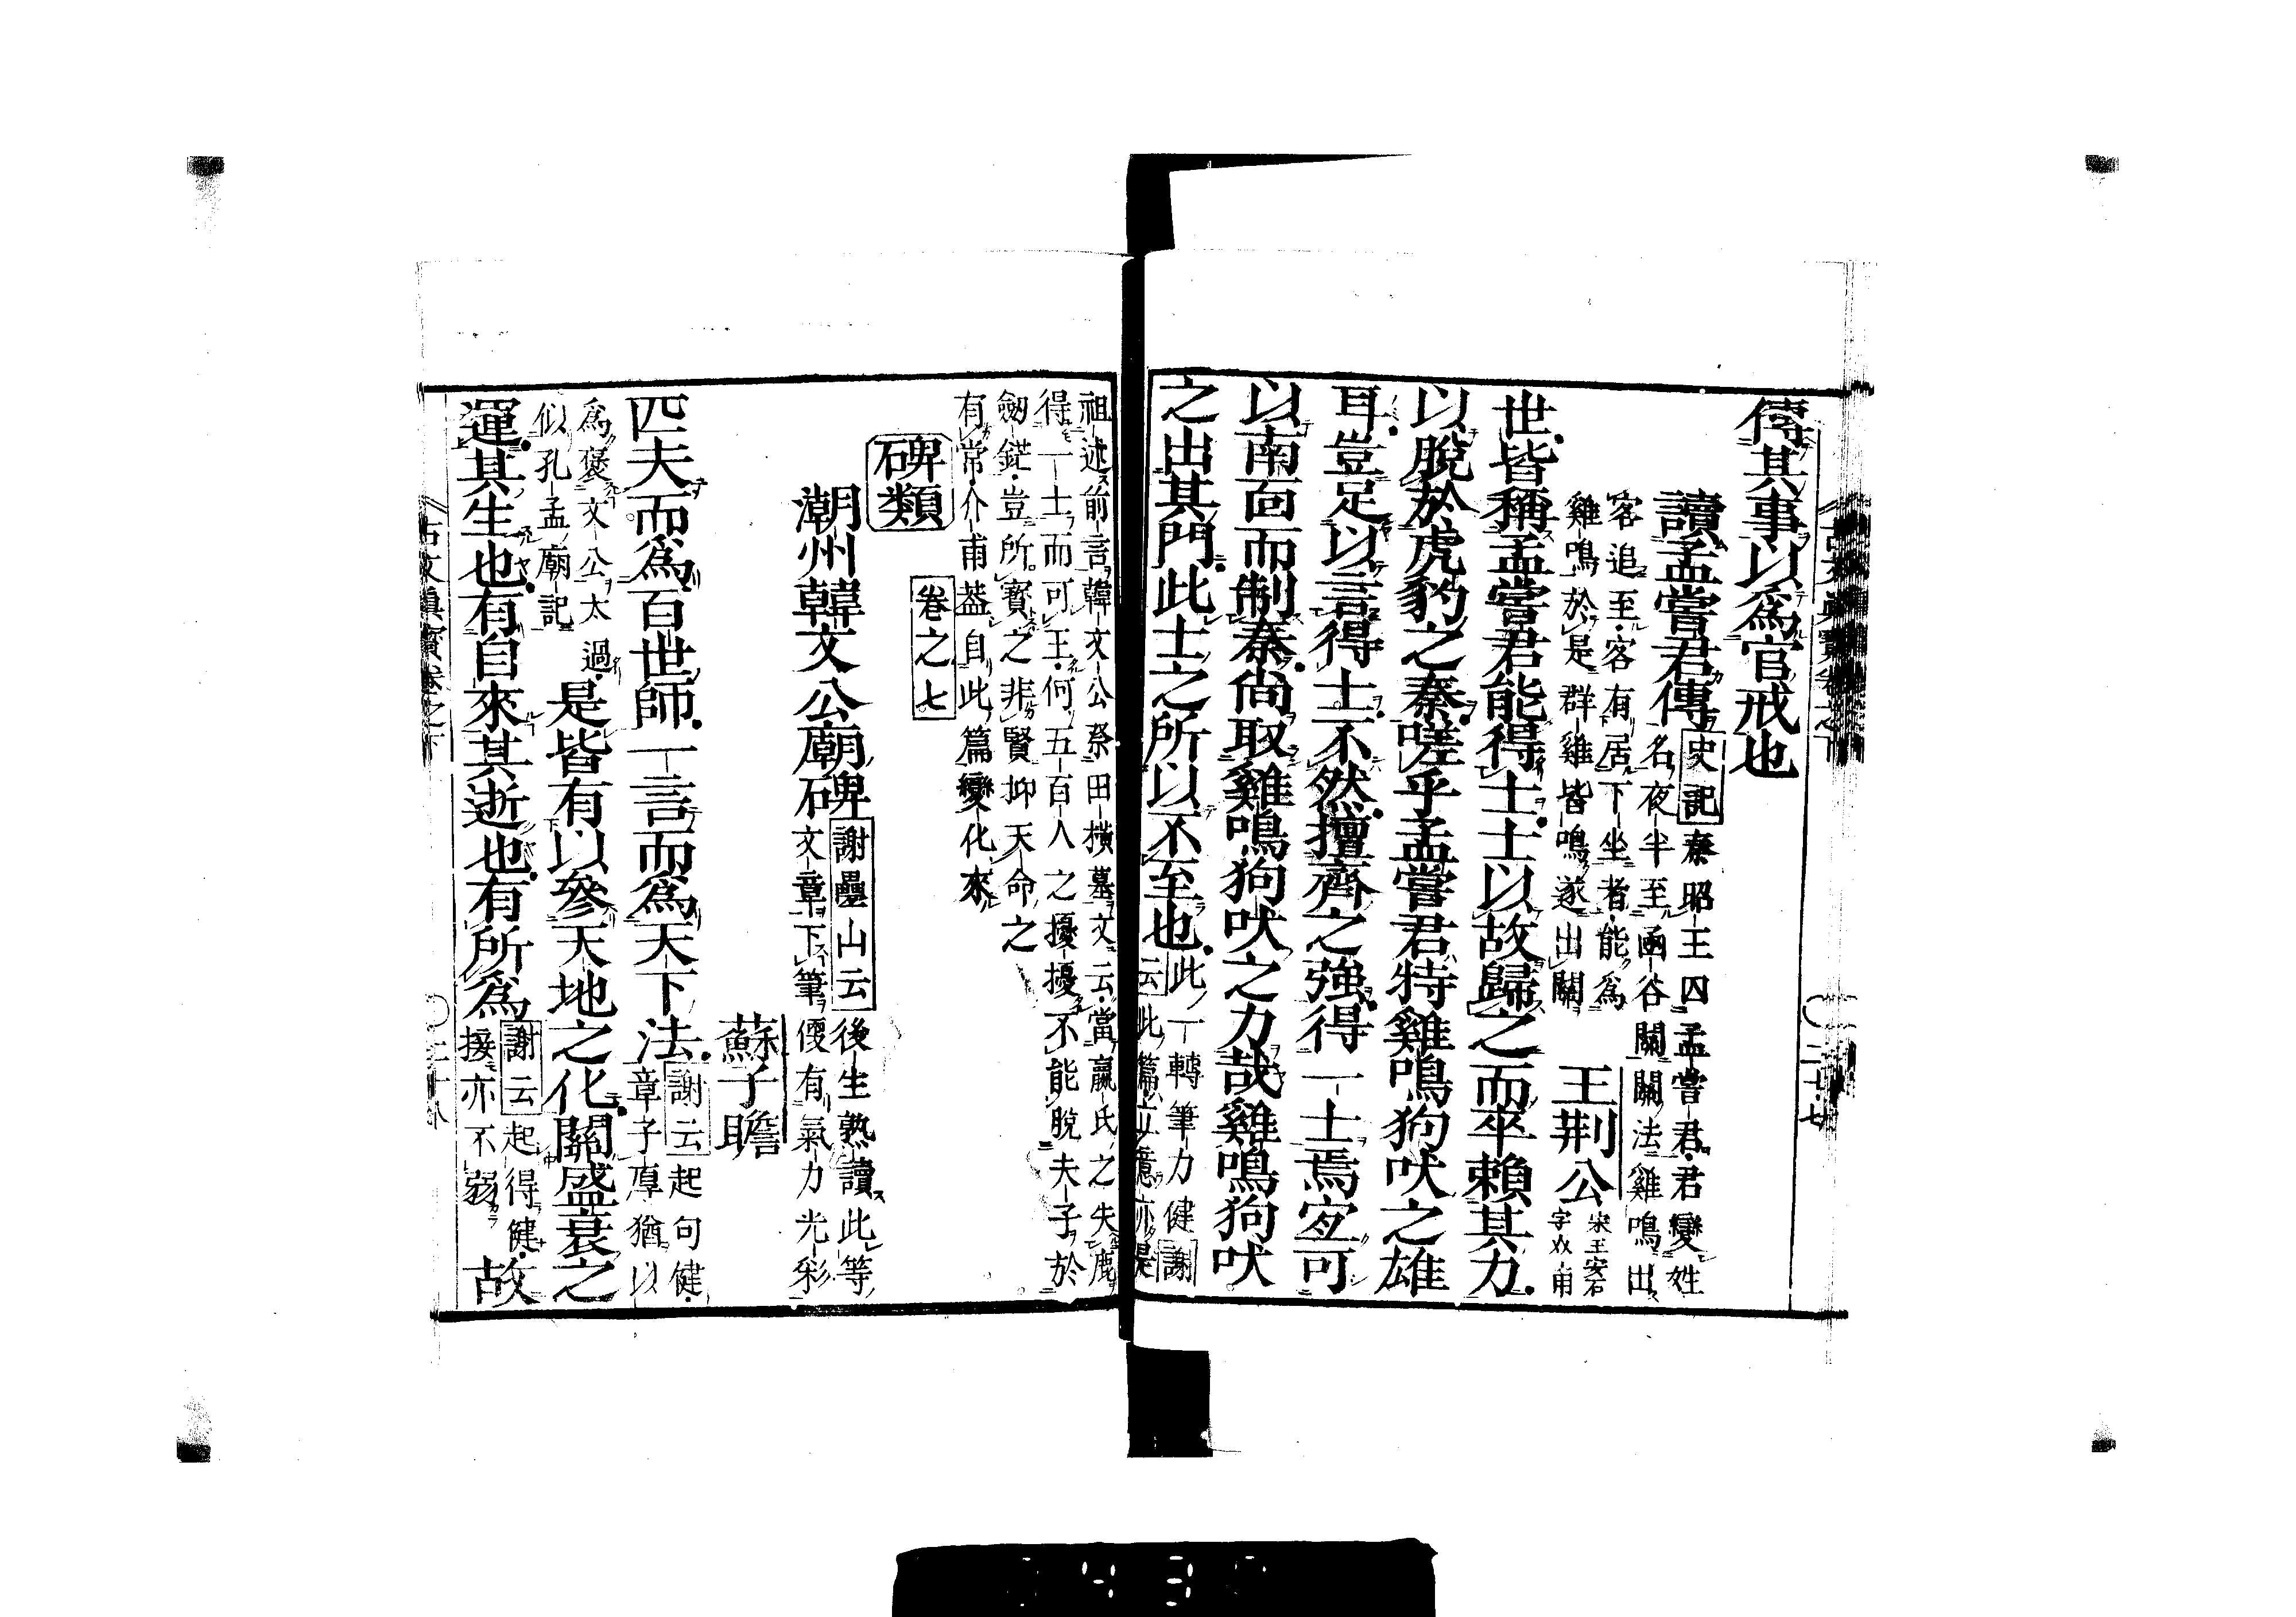 傳其事以爲官戒也
讀孟嘗君傳
史記秦昭王囚孟嘗君君變姓
名夜半至函谷關關法雞鳴出
客追至客有居下坐者能爲
雞鳴於是群雞皆鳴遂出關
王荆公
宋王安石
字介甫
世皆稱孟嘗君能得士士以故歸之而卒賴其力
以脫於虎豹之秦嗟乎孟嘗君特雞鳴狗吠之雄
耳豈足以言得士不然擅齊之強得一士焉宜可
以南面而制秦尚取雞鳴狗吠之力哉雞鳴狗吠
之出其門此士之所以不至也
此一轉筆力健謝
云此篇立意亦是
祖述前言韓文公祭田橫墓文云當嬴氏之失鹿
得一士而可王何五百人之擾擾不能脫夫子於
劒鋩豈所寳之非賢抑天命之
有常介甫葢自此篇變化來
卷之七
碑類
潮州韓文公廟碑
謝疊山云後生熟讀此等
文章下筆便有氣力光彩
蘇子瞻
匹夫而爲百世師一言而爲天下法
謝云起句健
章子厚猶以
爲褒文公太過
似孔孟廟記
是皆有以參天地之化關盛衰之
運其生也有自來其逝也有所爲
謝云起得健
接亦不弱
故
古文眞寳卷之下
二十七